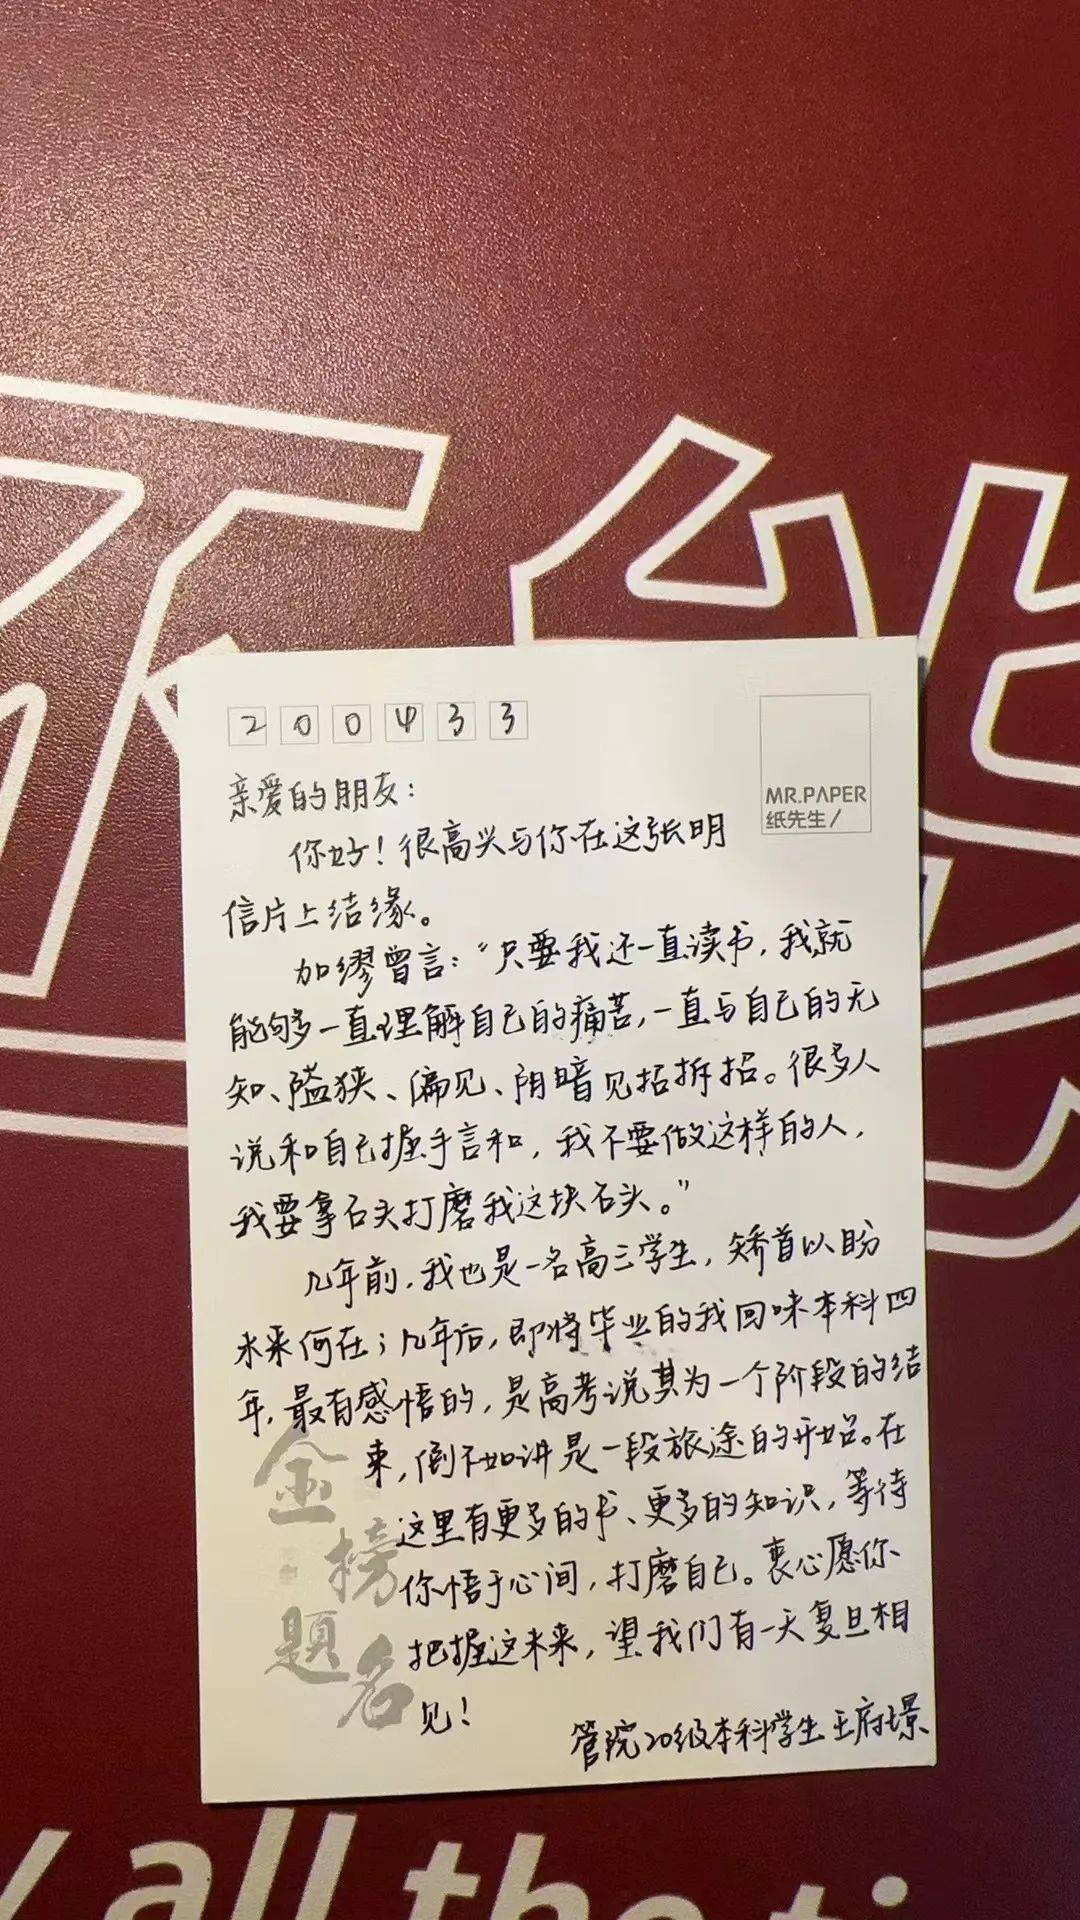 200433
MR.PAPER
纸先生/
亲爱的朋友：
你好！很高兴与你在这张明
信片上结缘。
加缪曾言：“只要我还一直读书，我就
能够一直理解自己的痛苦，一直与自己的无
知、隘狭、偏见、阴暗见招拆招。很多人
说和自己握手言和，我不要做这样的人，
我要拿石头打磨我这块石头。”
几年前，我也是一名高三学生，矫首以盼
未来何在；几年后，即将毕业的我回味本科四
年，最有感悟的，是高考说其为一个阶段的结
束，倒不如讲是一段旅途的开始。在
这里有更多的书、更多的知识，等待
你悟于心间，打磨自己。衷心愿你
把握这未来，望我们有一天复旦相
见！
管院20级本科学生 王府璟
金榜题名
all the ti